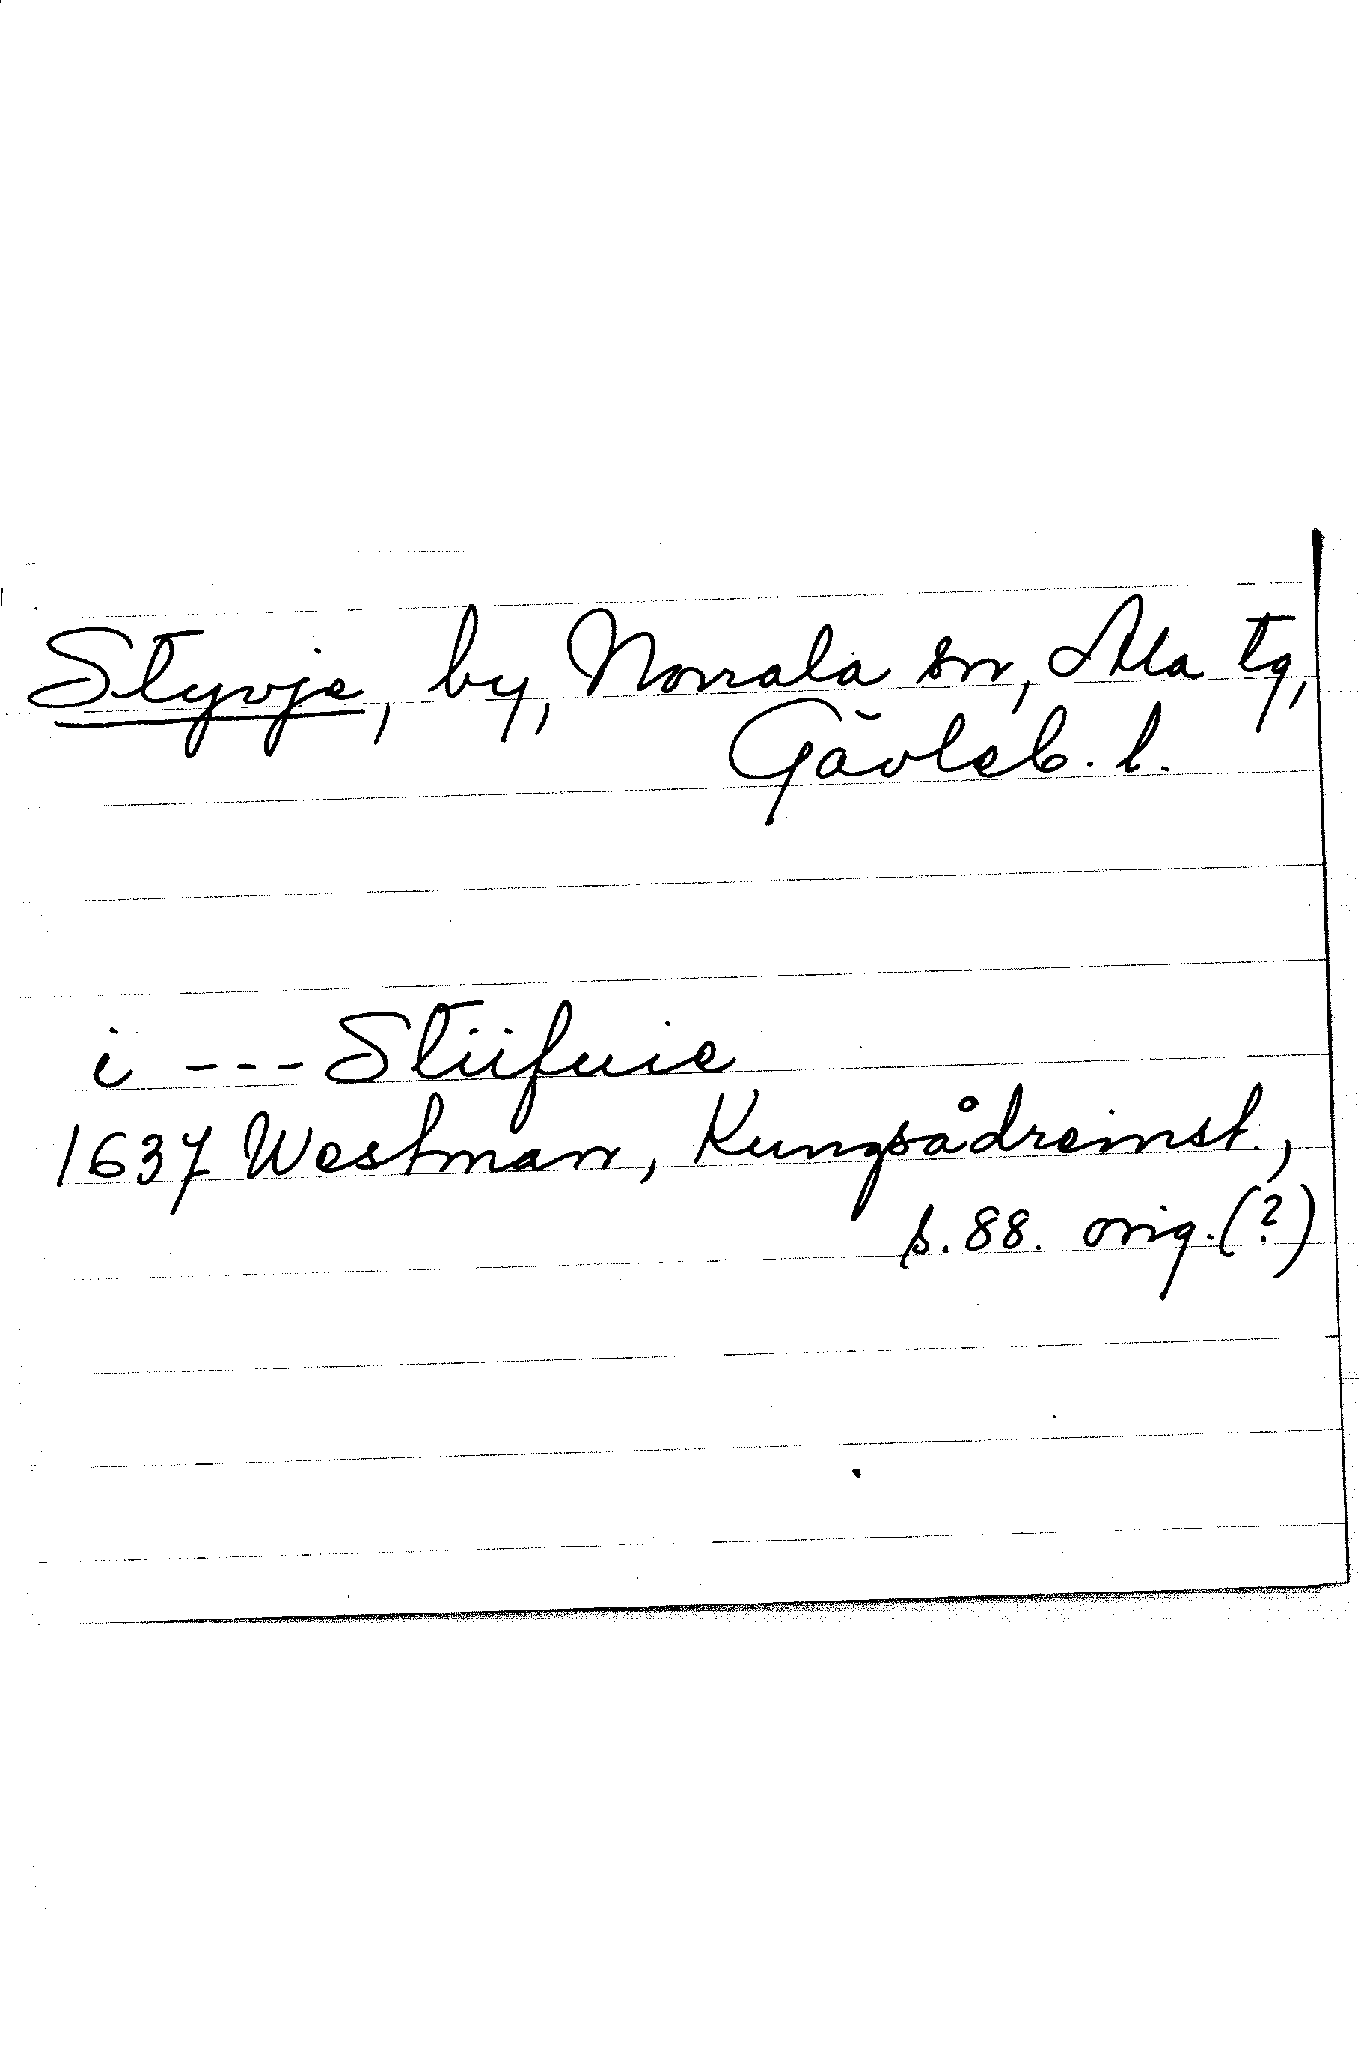 Styvje, by, Norrala sn, Ala tg,
Gävleb. l.
i --- Stiifuie
1637 Westman, Kungsådreinst.,
s. 88. orig. (?)